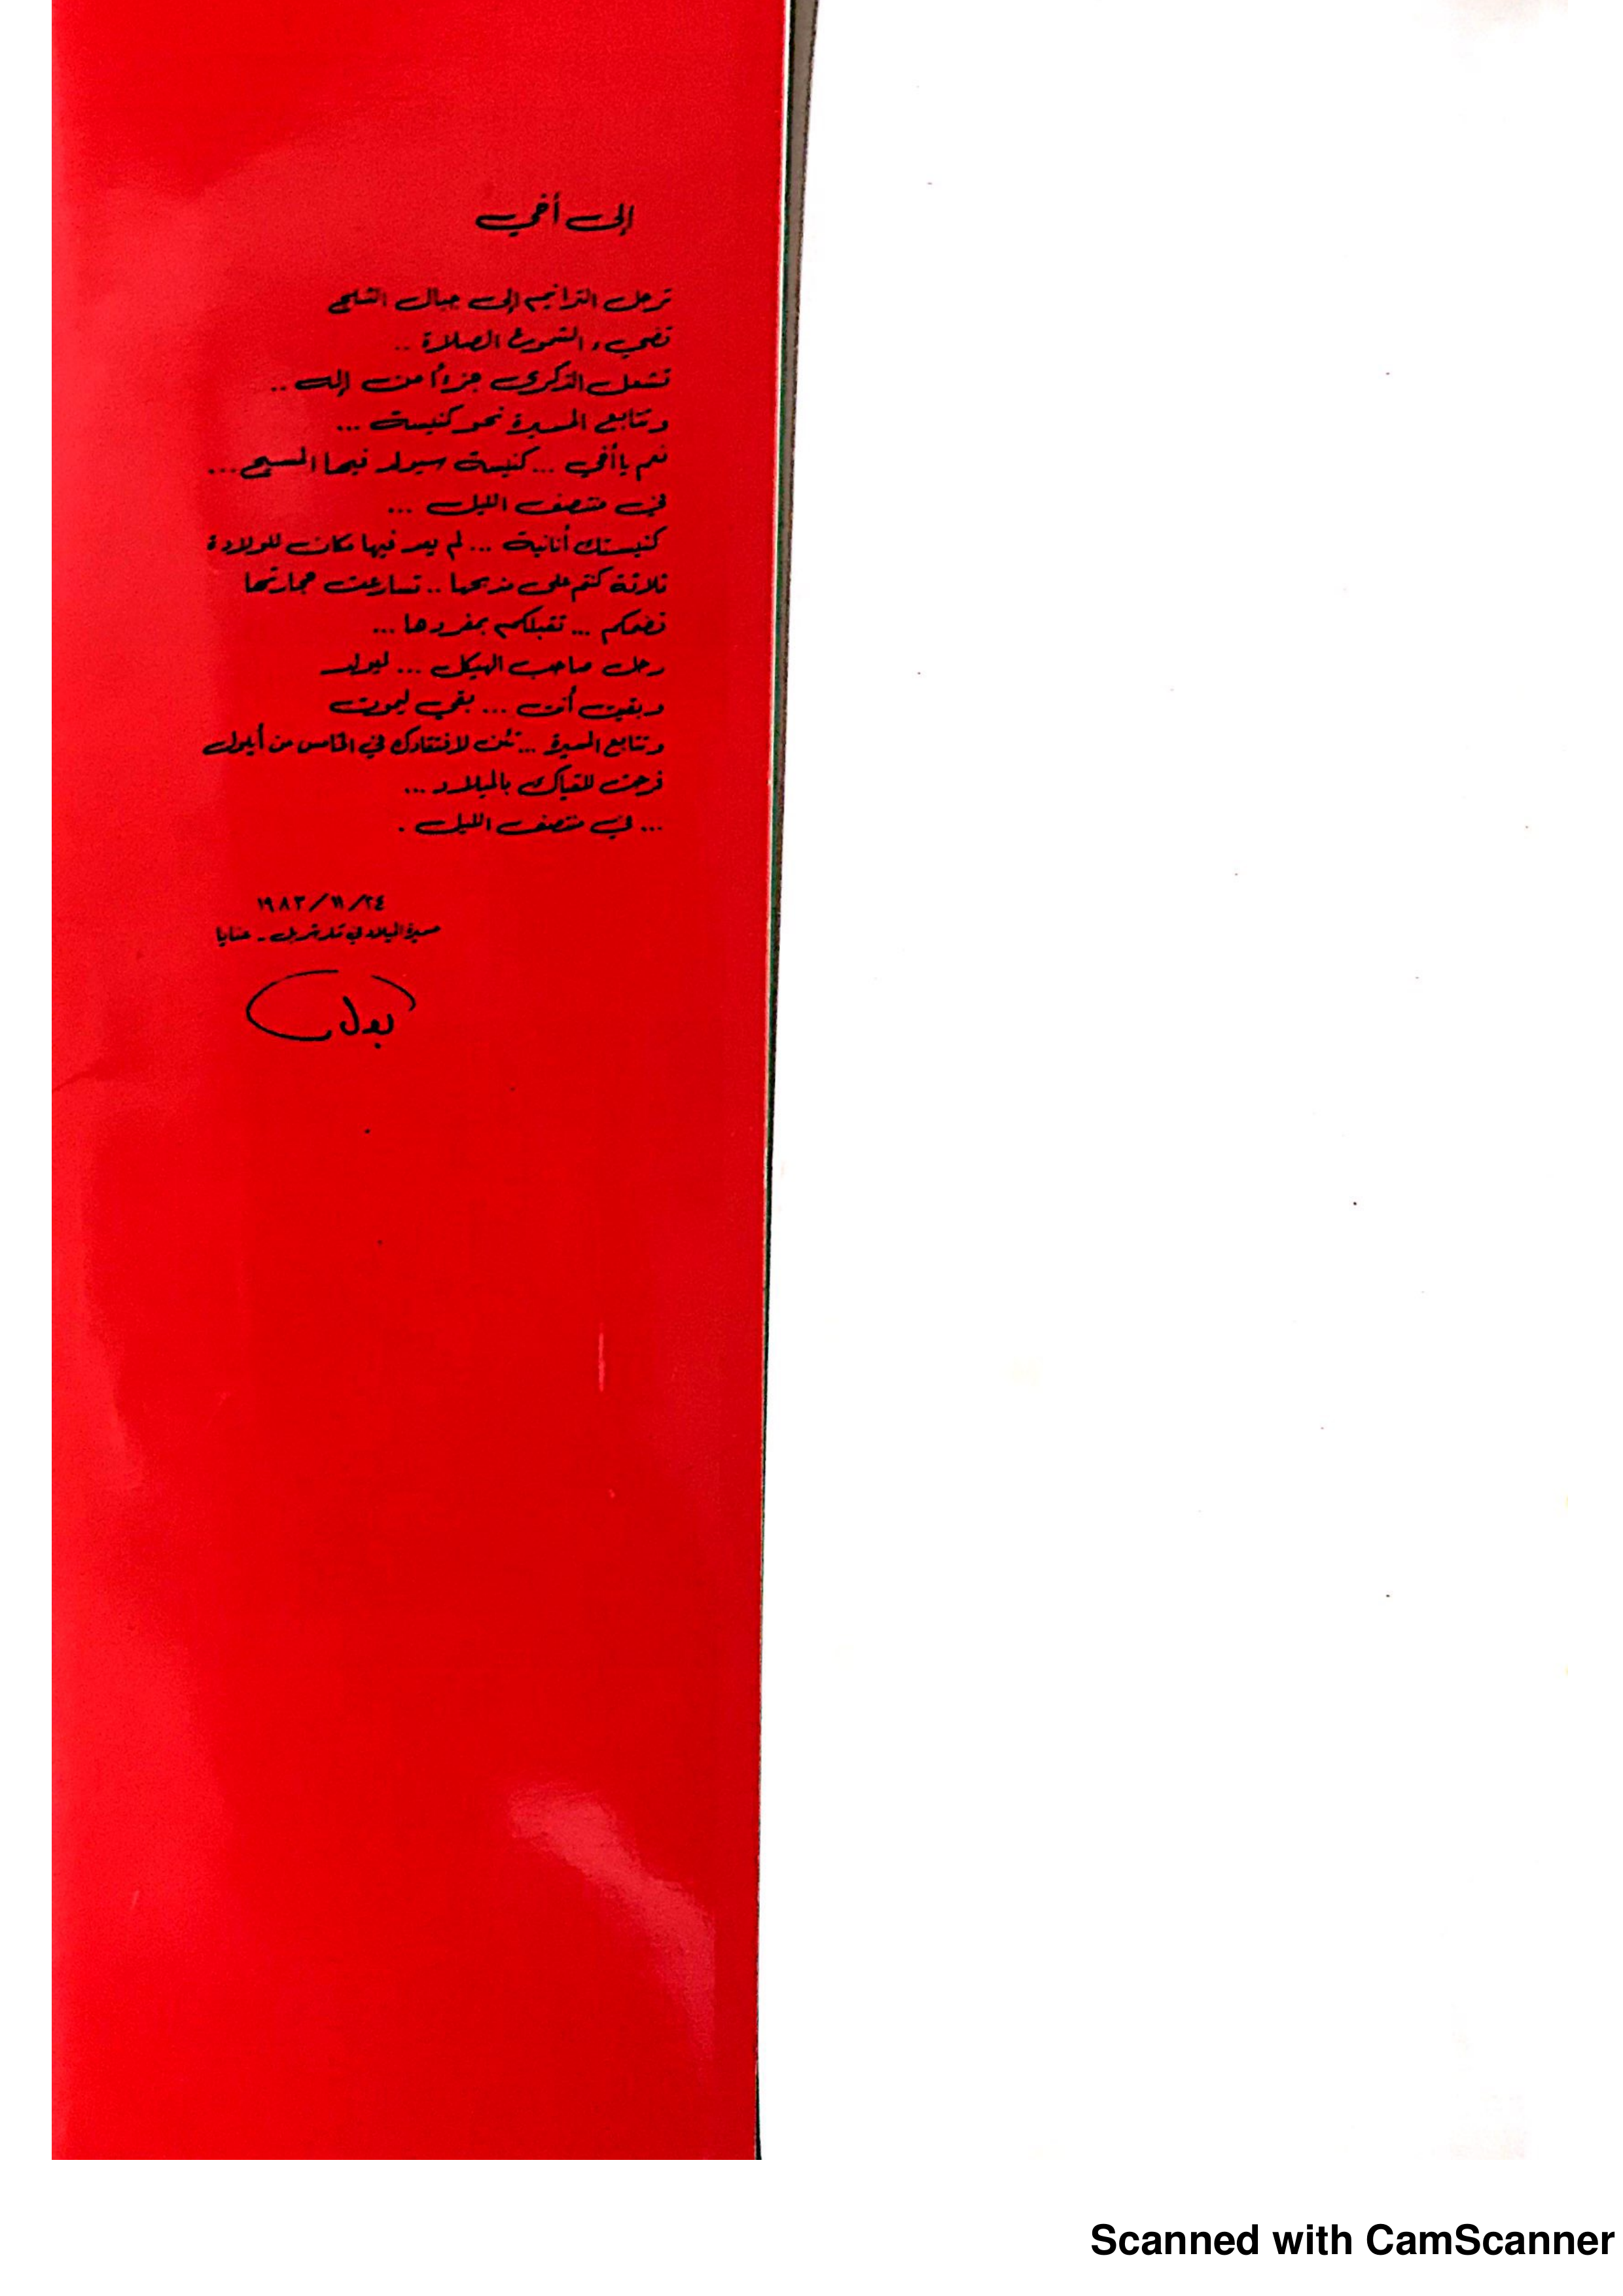 إلى أخي
ترحل الترانيم إلى جبال الثلج
تضيء الشموع الصلاة ..
تشعل الذكرى جزءاً من إله ..
وتتابع المسيرة نحو كنيسة ...
نعم يا أخي ... كنيسة سيولد فيها المسيح ...
في منتصف الليل ...
كنيستك أنانية ... لم يعد فيها مكان للولادة
ثلاثة كنتم على مذبحها .. تسارعت حجارتها
تضمكم ... تقبلكم بمفردها ...
رحل صاحب الهيكل ... ليولد
وبقيت أنت ... بقي ليموت
وتتابع المسيرة ... تئن لافتقادك في الخامس من أيلول
فرحت للقياك بالميلاد ...
... في منتصف الليل .
١٩٨٣/١١/٢٤
مسيرة الميلاد في - عنايا
بول
Scanned with CamScanner